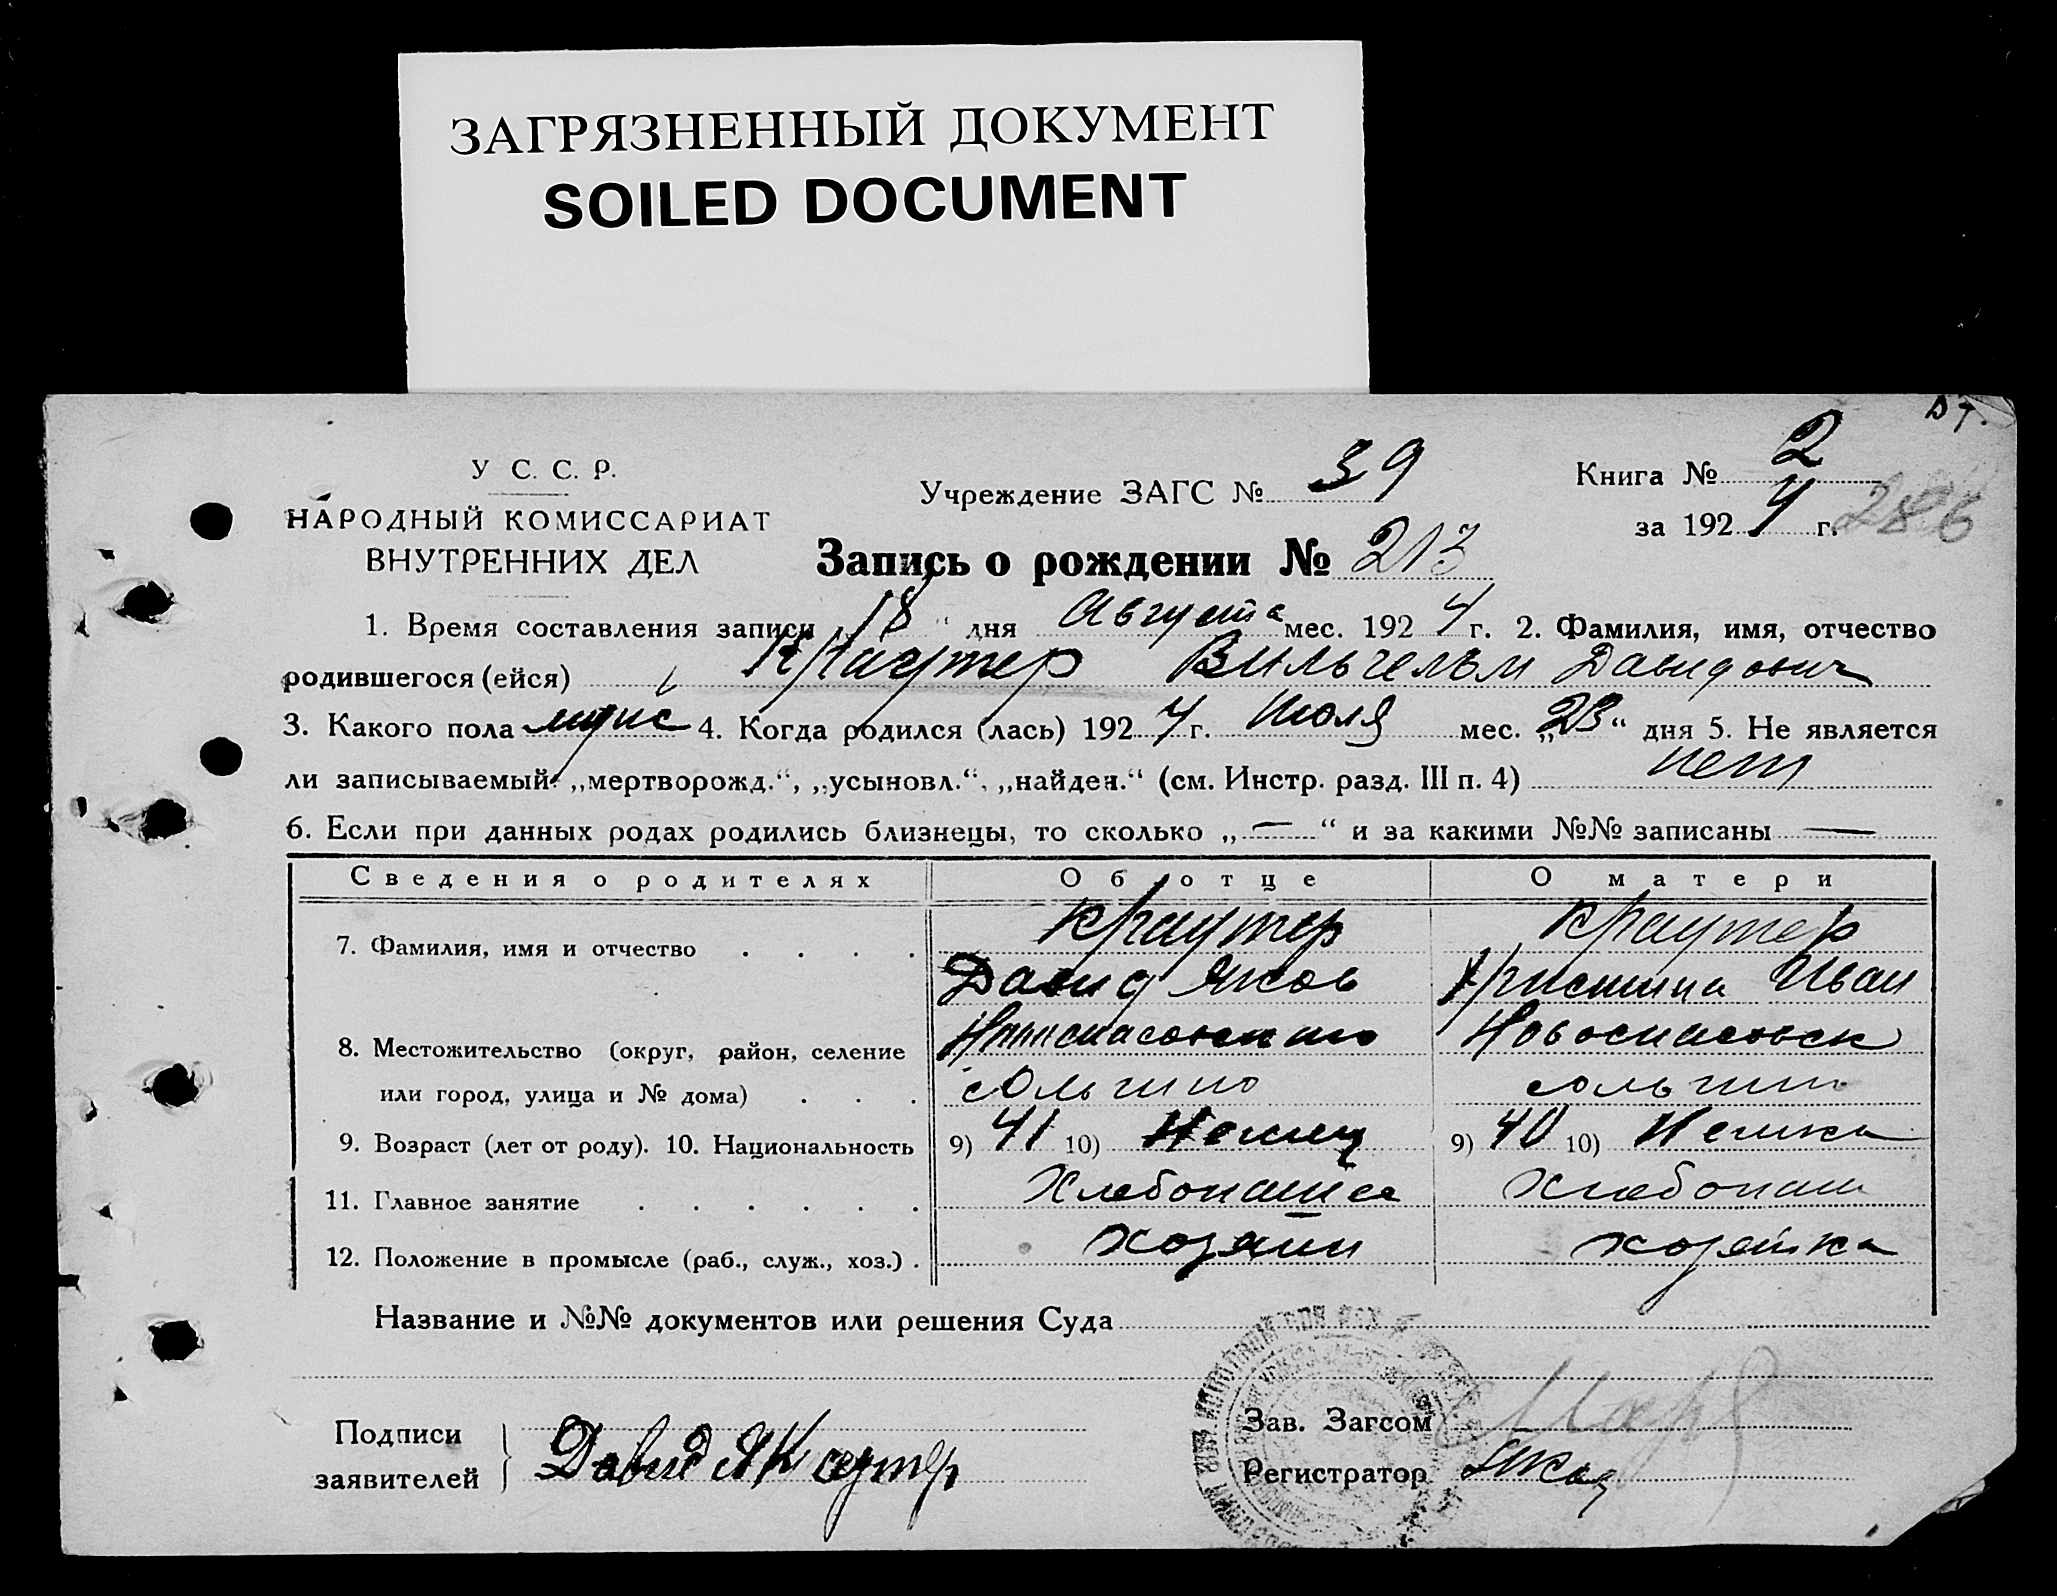 ЗАГРЯЗНЕННЫЙ ДОКУМЕНТ
SOILED DOCUMENT
У С. С. Р.
НАРОДНЫЙ КОМИССАРИАТ
ВНУТРЕННИХ ДЕЛ
Учреждение ЗАГС № 39
Книга № 2
за 192 4 г. 286
Запись о рождении № 213
1. Время составления записи „18“ дня Августа мес. 192 4 г. 2. Фамилия, имя, отчество
родившегося (ейся) Краутер Вильгельм Давидович
3. Какого пола муж 4. Когда родился (лась) 192 4 г. Июля мес. „23“ дня 5. Не является
ли записываемый „мертворожд.“, „усыновл.“, „найден.“ (см. Инстр. разд. III п. 4) нет
6. Если при данных родах родились близнецы, то сколько „—“ и за какими №№ записаны —
Сведения о родителях Об отце О матери
7. Фамилия, имя и отчество . . . . Краутер Краутер
Давид Яков Христина Иван
8. Местожительство (округ, район, селение Новоспасовск
или город, улица и № дома) . . . сОльгино сОльгино
9. Возраст (лет от роду). 10. Национальность 9) 41 10) Немец 9) 40 10) Немка
11. Главное занятие . . . . . . Хлебопашец Хлебопаш
12. Положение в промысле (раб., служ., хоз.) . Хозяин хозяйка
Название и №№ документов или решения Суда
Подписи
заявителей } Давид Я Краутер
Зав. Загсом
Регистратор